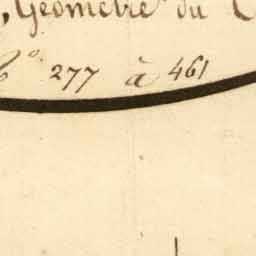 , Géomètre du
N° 277 à 461